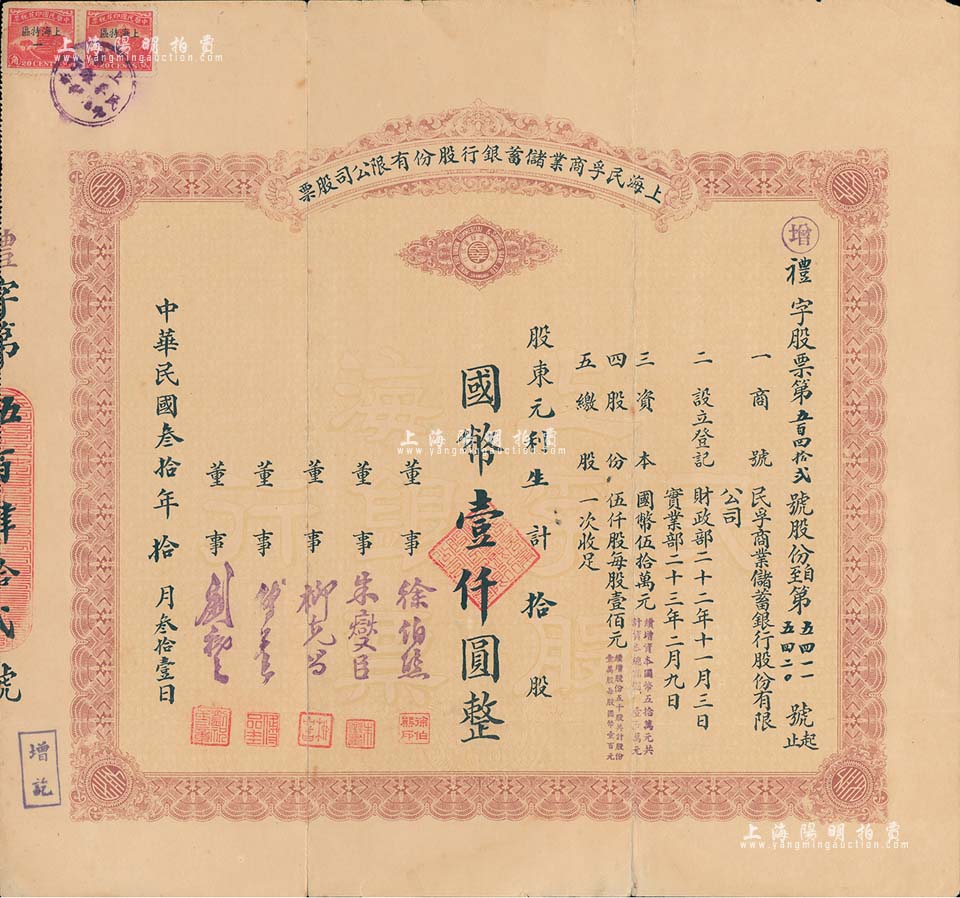 上海民孚商業儲蓄銀行股份有限公司股票
增
禮字股票第五百四拾弍號股份自第五四一一號起
至五四二〇號止
一商號 民孚商業儲蓄銀行股份有限
公司
二設立登記 財政部二十二年十一月三日
實業部二十三年二月九日
三資本 國幣伍拾萬元
續增資本國幣五拾萬元共
四股份 伍仟股每股壹佰元
壹萬股每股國幣壹百元
五繳股 一次收足
股東元利生計拾股
國幣壹仟圓整
董事 徐伯熊
董事 朱燮臣
董事
董事
董事
中華民國叁拾年拾月叁拾壹日
禮字第伍百肆拾弍號
增訖
中華民國印花稅票
上海特區
20 CENTS
中華民國印花稅票
上海特區
20 CENTS
上海陽明拍賣
www.yangmingauction.com
上海陽明拍賣
www.yangmingauction.com
上海陽明拍賣
www.yangmingauction.com